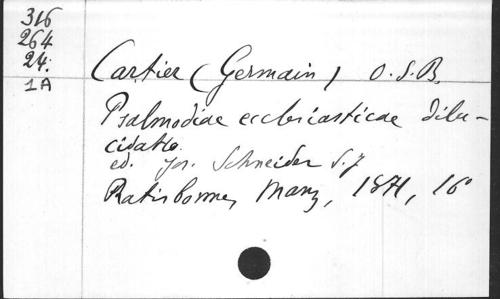 316
264
24.
1A
Cartier (Germain) O.S.B.
Psalmodiae ecclesiasticae dilu-
cidatio
ed. Jos. Schneider S.J
Ratisbonne, Manz, 1871, 16°